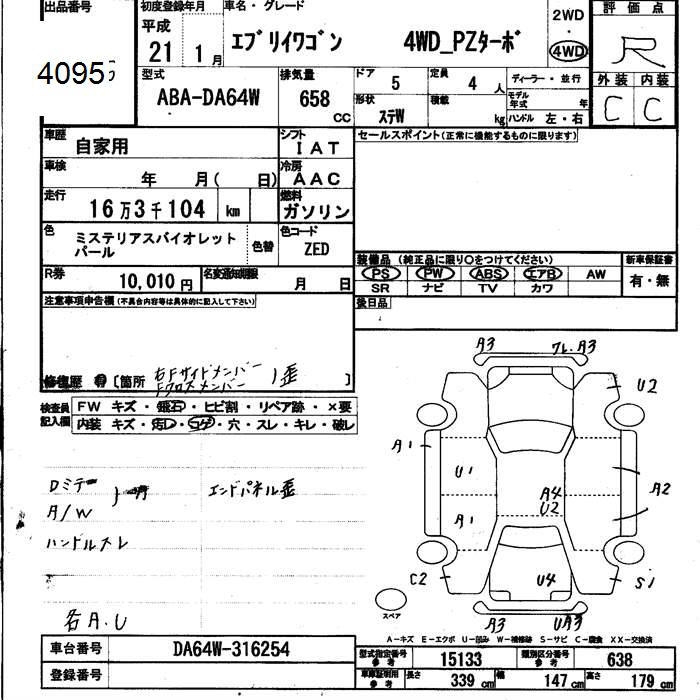 出品番号
4095
初度登録年月
平成
21 1月
車名・グレード
エブリイワゴン 4WD_PZターボ
2WD
・
4WD
評価点
R
外装 内装
C C
型式
ABA-DA64W
排気量
658 CC
ドア 5
定員 4人
ディーラー・並行
形状 ステW
積載 kg
モデル年式 年
ハンドル 左・右
車歴
自家用
シフト
IAT
セールスポイント(正常に機能するものに限ります)
車検
年 月( 日)
冷房
AAC
走行
16万3千104 km
燃料
ガソリン
色
ミステリアスバイオレット
パール
色替
色コード
ZED
装備品 (純正品に限り○をつけてください)
新車保証書
PS PW ABS エアB AW
SR ナビ TV カワ
有・無
R券
10,010円
名変通知期限
月 日
後日品
注意事項申告欄(不具合内容等は具体的に記入して下さい)
修復歴 有 [箇所 右Fサイドメンバー
Fクロスメンバー 歪 ]
検査員
記入欄
FW キズ・飛石・ヒビ割・リペア跡・×要
内装 キズ・汚レ・コゲ・穴・スレ・キレ・破レ
エンドパネル歪
A/W
ハンドルスレ
各A.U
A3 フレ.A3
U2
A1
U1
A4
U2
A2
A1
C2
U4
S1
U3 UA3
スペア
A-キズ E-エクボ U-凹み W-補修跡 S-サビ C-腐食 XX-交換済
車台番号 DA64W-316254
登録番号
型式指定番号
参考
15133
類別区分番号
参考
638
車庫証明用
参考
長さ 339 cm 幅 147 cm 高さ 179 cm